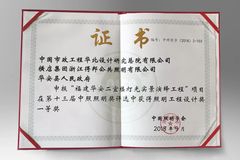 证书
中国市政工程华北设计研究总院有限公司
横店集团浙江得邦公共照明有限公司
华安县人民政府
申报“福建华安二宜楼灯光实景演绎工程”项目
在第十三届中照照明奖评选中获得照明工程设计奖
一等奖
中国照明学会
2018年9月